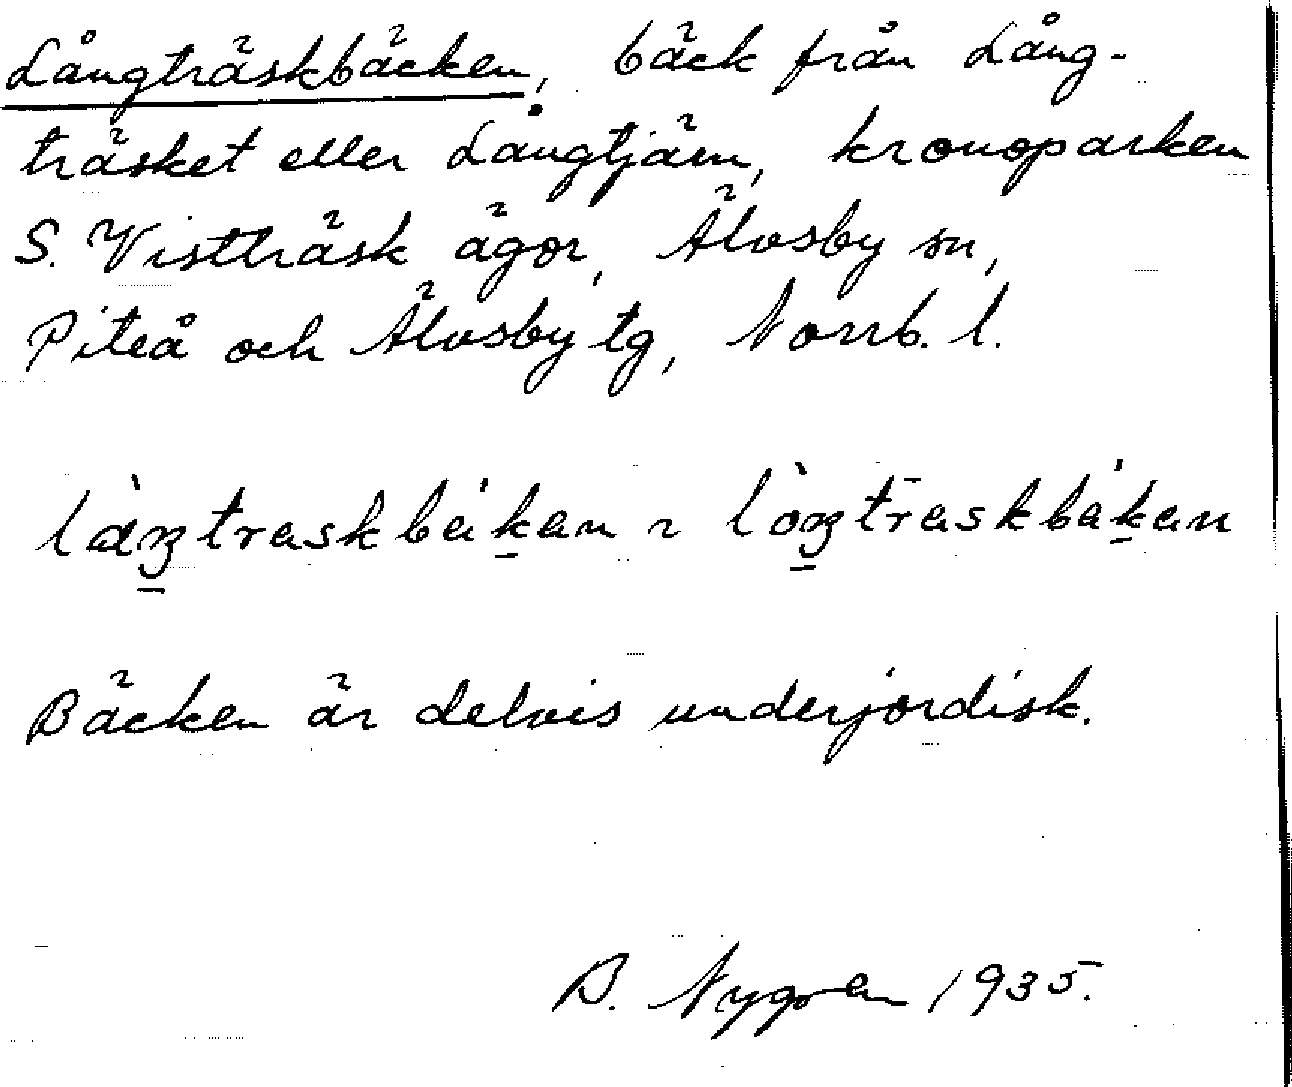 Långträskbäcken, bäck från Lång-
träsket eller Långtjärn, kronoparken
S. Vistträsk ägor, Älvsby sn,
Piteå och Älvsby tg, Norrb. l.
Bäcken är delvis underjordisk.
B. Nygren 1935.